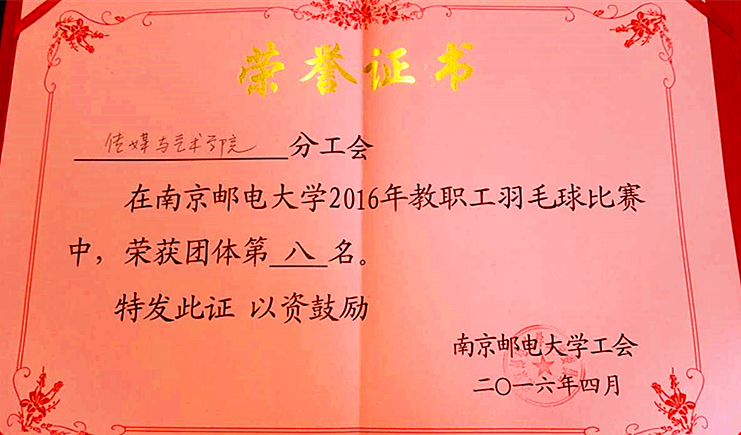 荣誉证书
传媒与艺术学院分工会
在南京邮电大学2016年教职工羽毛球比赛
中，荣获团体第八名。
特发此证 以资鼓励
南京邮电大学工会
二〇一六年四月